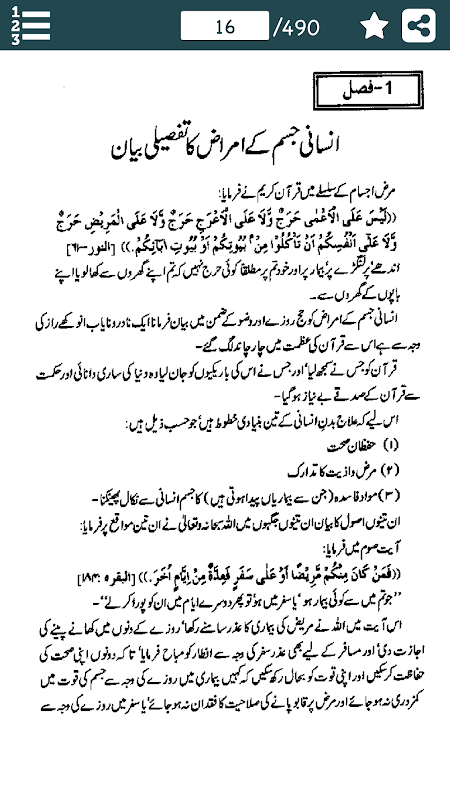 1
2
3
16
/490
1-فصل
انسانی جسم کے امراض کا تفصیلی بیان
مرض اجسام کے سلسلے میں قرآن کریم نے فرمایا:
((لَيْسَ عَلَى الْاَعْمٰى حَرَجٌ وَّلَا عَلَى الْاَعْرَجِ حَرَجٌ وَّلَا عَلَى الْمَرِيْضِ حَرَجٌ
وَّلَا عَلٰٓى اَنْفُسِكُمْ اَنْ تَاْكُلُوْا مِنْۢ بُيُوْتِكُمْ اَوْ بُيُوْتِ اٰبَآئِكُمْ.)) [النور–۶۱]
اندھے' پر لنگڑے پر' بیمار پر اور خود تم پر مطلقاً کوئی حرج نہیں کہ تم اپنے گھروں سے کھا لو یا اپنے
باپوں کے گھروں سے۔
انسانی جسم کے امراض کو حج روزے اور وضو کے ضمن میں بیان فرمانا ایک نادر و نایاب انوکھے راز کی
وجہ سے ہے اس سے قرآن کی عظمت میں چار چاند لگ گئے–
قرآن کو جس نے سمجھ لیا' اور جس نے اس کی باریکیوں کو جان لیا وہ دنیا کی ساری دانائی اور حکمت
سے قرآن کے صدقے بے نیاز ہو گیا–
اس لیے کہ علاج بدنِ انسانی کے تین بنیادی خطوط ہیں' جو حسب ذیل ہیں:
(۱) حفظان صحت
(۲) مرض و اذیت کا تدارک
(۳) مواد فاسدہ (جن سے بیماریاں پیدا ہوتی ہیں) کا جسم انسانی سے نکال پھینکنا–
ان تینوں اصول کا بیان ان تینوں جگہوں میں اللہ سبحانہ و تعالیٰ نے ان تین مواقع پر فرمایا:
آیت صوم میں فرمایا:
((فَمَنْ كَانَ مِنْكُمْ مَّرِيْضًا اَوْ عَلٰى سَفَرٍ فَعِدَّةٌ مِّنْ اَيَّامٍ اُخَرَ.)) [البقرہ :۱۸۴]
''جو تم میں سے کوئی بیمار ہو' یا سفر میں ہو تو پھر دوسرے ایام میں ان کو پورا کر لے''–
اس آیت میں اللہ نے مریض کی بیماری کا عذر سامنے رکھا' روزے کے دنوں میں کھانے پینے کی
اجازت دی' اور مسافر کے لیے بھی عذر سفر کی وجہ سے افطار کو مباح فرمایا' تا کہ دونوں اپنی صحت کی
حفاظت کر سکیں اور اپنی قوت کو بحال رکھ سکیں کہ کہیں بیماری میں روزے کی وجہ سے جسم کی قوت میں
کمزوری نہ ہو جائے اور مرض پر قابو پانے کی صلاحیت کا فقدان نہ ہو جائے' یا سفر میں روزے کی وجہ سے